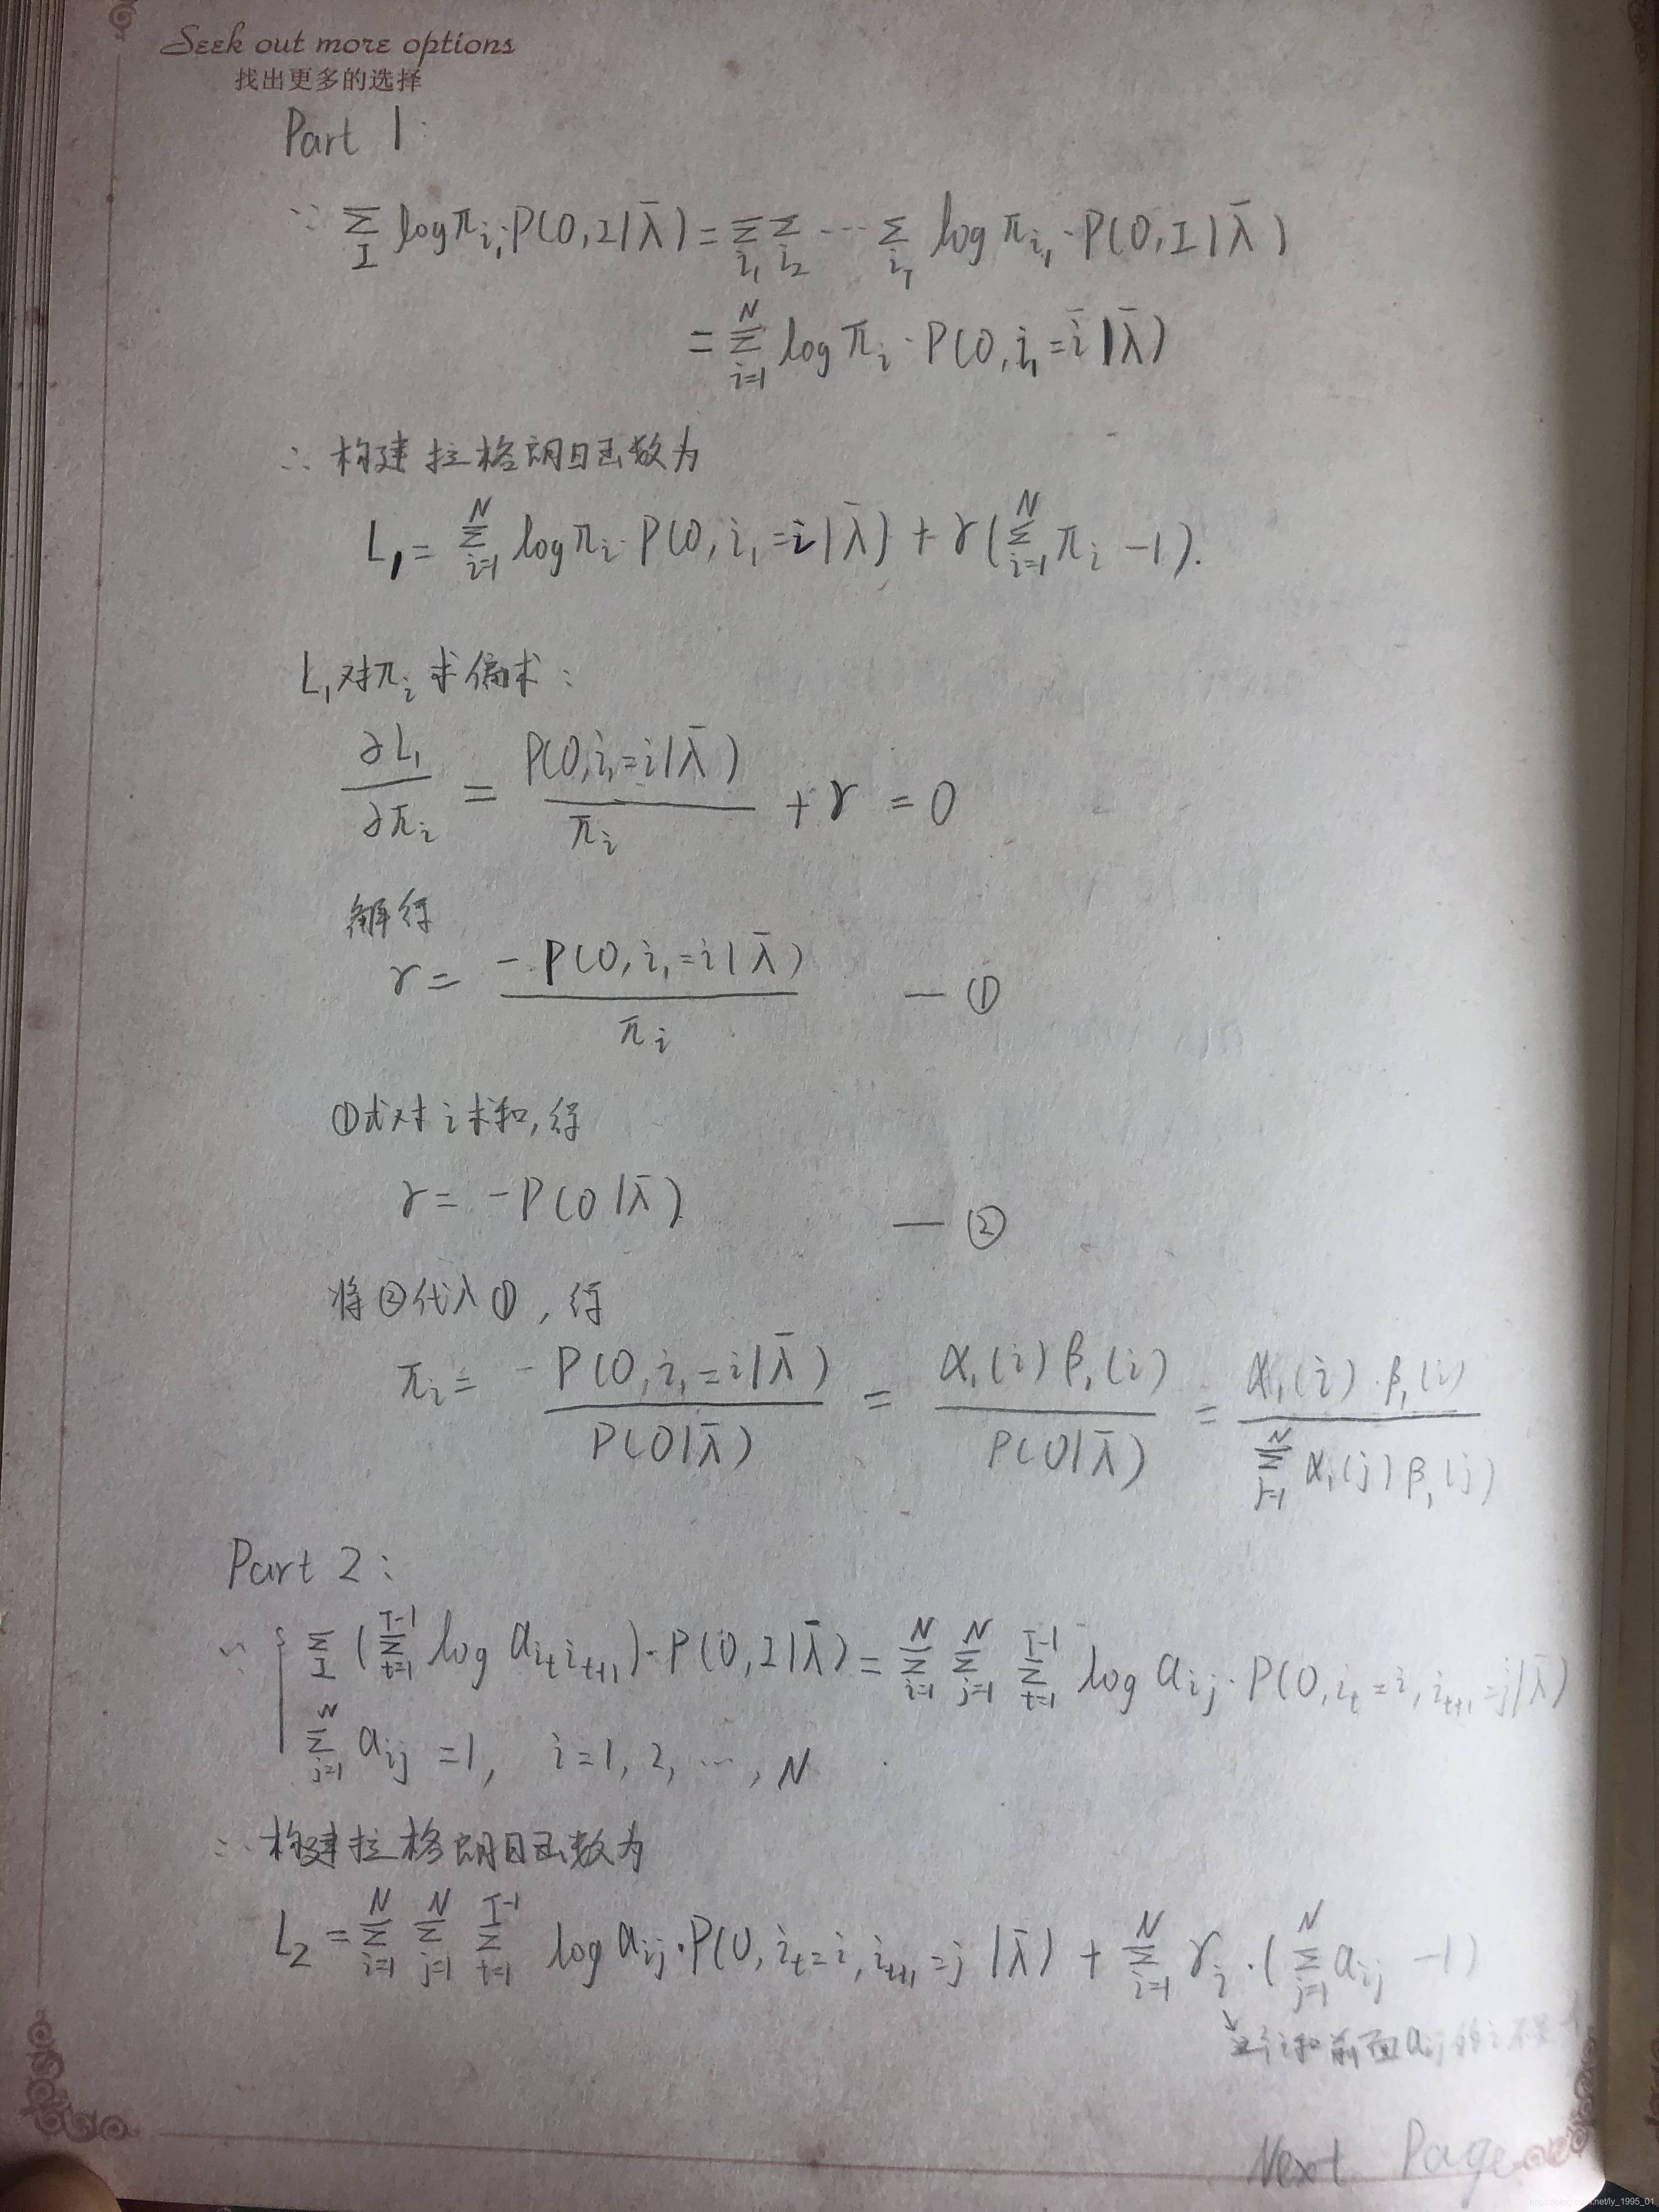 Seek out more options
找出更多的选择
Part 1:
∵ Σ_I logπ_{i₁}·P(O,I|λ̄) = Σ_{i₁} Σ_{i₂} ··· Σ_{i_T} log π_{i₁}·P(O,I|λ̄)
= Σ_{i=1}^{N} log π_i · P(O, i₁=i|λ̄)
∴ 构建拉格朗日函数为
L₁ = Σ_{i=1}^{N} logπ_i·P(O, i₁=i|λ̄) + γ(Σ_{i=1}^{N} π_i −1).
L₁对π_i求偏求:
∂L₁/∂π_i = P(O,i₁=i|λ̄)/π_i + γ = 0
解得
γ = −P(O,i₁=i|λ̄)/π_i —①
①式对i求和,得
γ = −P(O|λ̄) —②
将②代入①,得
π_i = −P(O,i₁=i|λ̄)/P(O|λ̄) = α₁(i)β₁(i)/P(O|λ̄) = α₁(i)·β₁(i)/Σ_{j=1}^{N} α₁(j)β₁(j)
Part 2:
∵ { Σ_I (Σ_{t=1}^{T-1} log a_{i_t i_{t+1}})·P(O,I|λ̄) = Σ_{i=1}^{N} Σ_{j=1}^{N} Σ_{t=1}^{T-1} log a_{ij}·P(O,i_t=i,i_{t+1}=j|λ̄)
Σ_{j=1}^{N} a_{ij} =1, i=1,2,···,N
∴ 构建拉格朗日函数为
L₂ = Σ_{i=1}^{N} Σ_{j=1}^{N} Σ_{t=1}^{T-1} log a_{ij}·P(O,i_t=i,i_{t+1}=j|λ̄) + Σ_{i=1}^{N} γ_i·(Σ_{j=1}^{N} a_{ij} −1)
↘ i和前面a_{ij}的i
Next Page
net/ly_1995_01